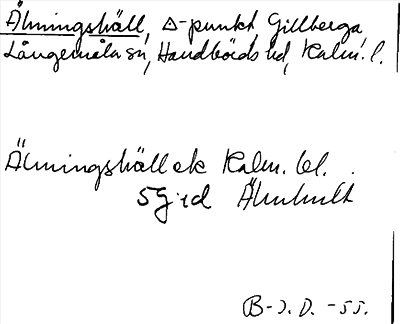 Älmingshäll, △-punkt Gillberga,
Långemåla sn, Handbörds hd, Kalm. l.
Älmingshäll ek Kalm. bl.
5G:d Älmhult
B-J. D. -55.